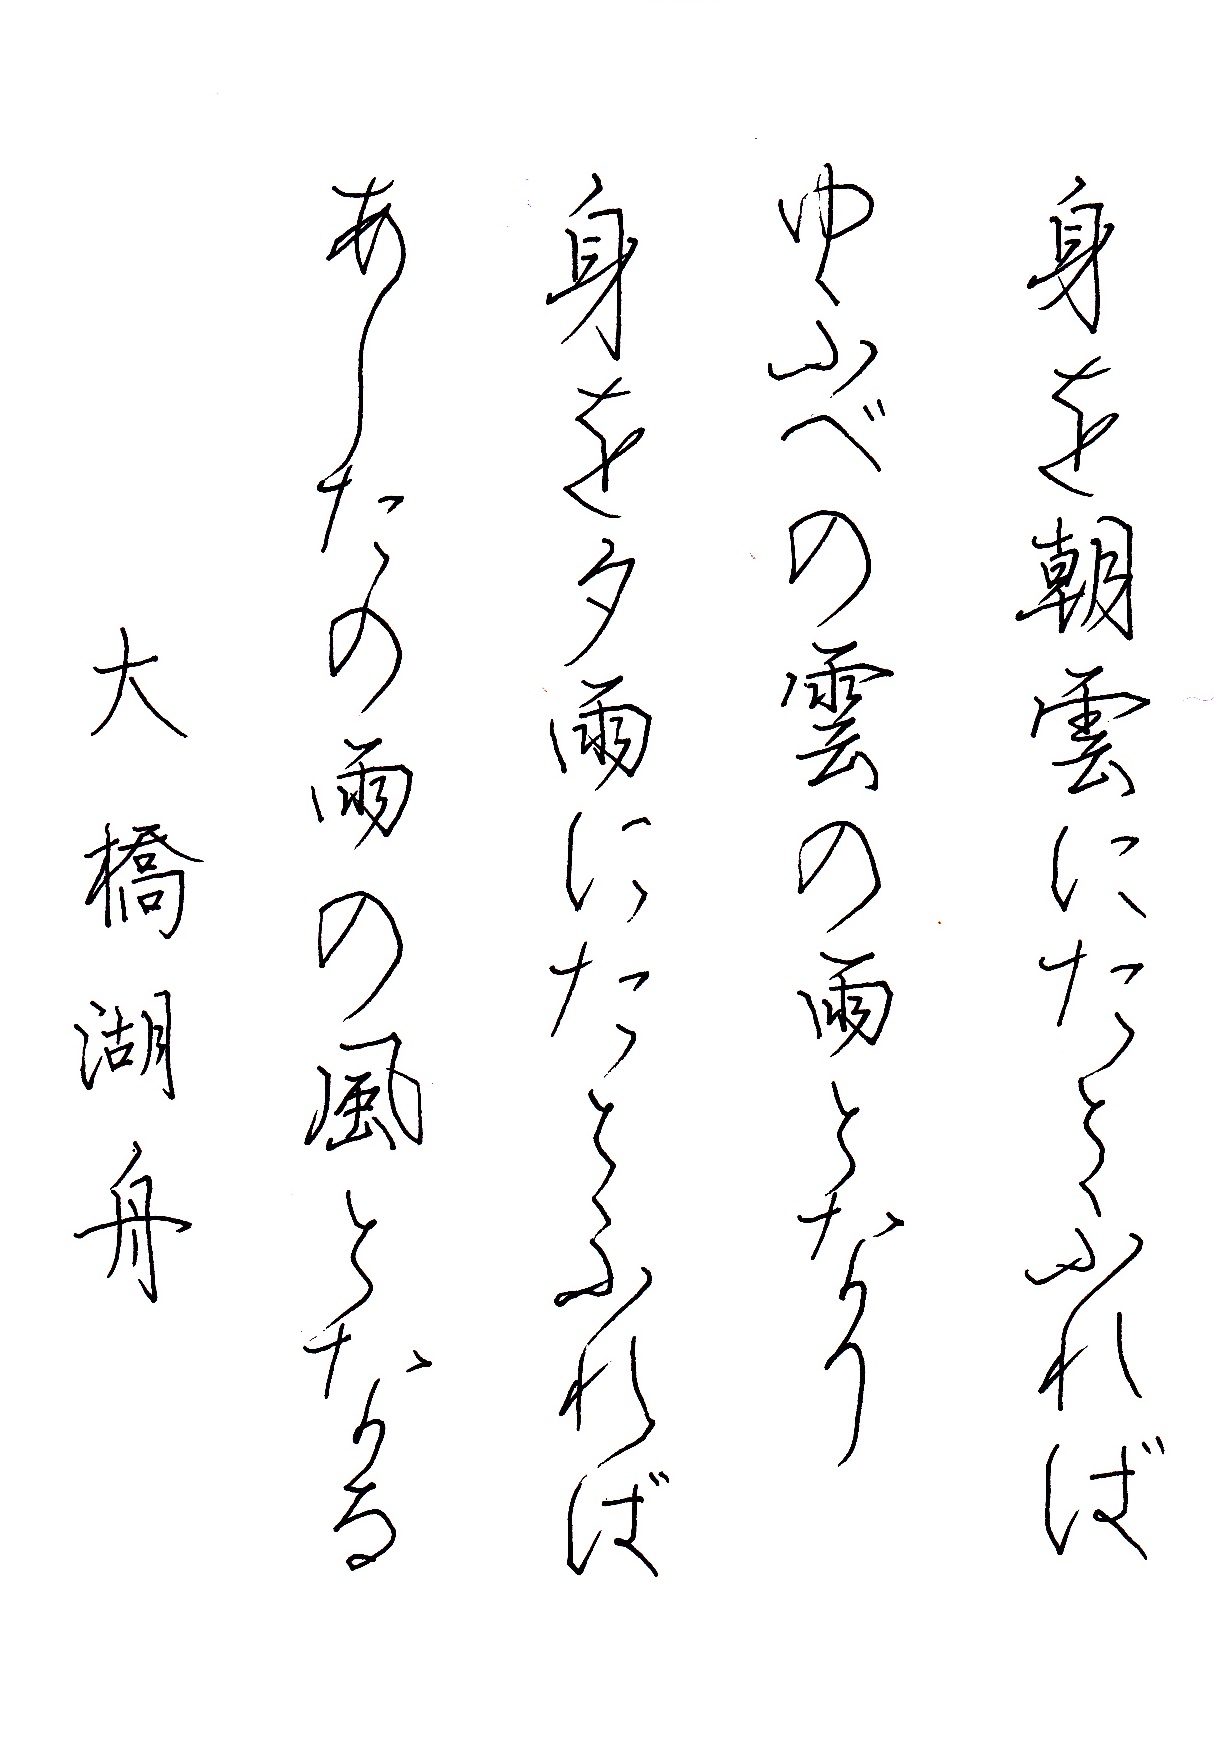 身を朝雲にたとふれば
ゆふべの雲の雨となり
身を夕雨にたとふれば
あしたの雨の風となる
大橋湖舟